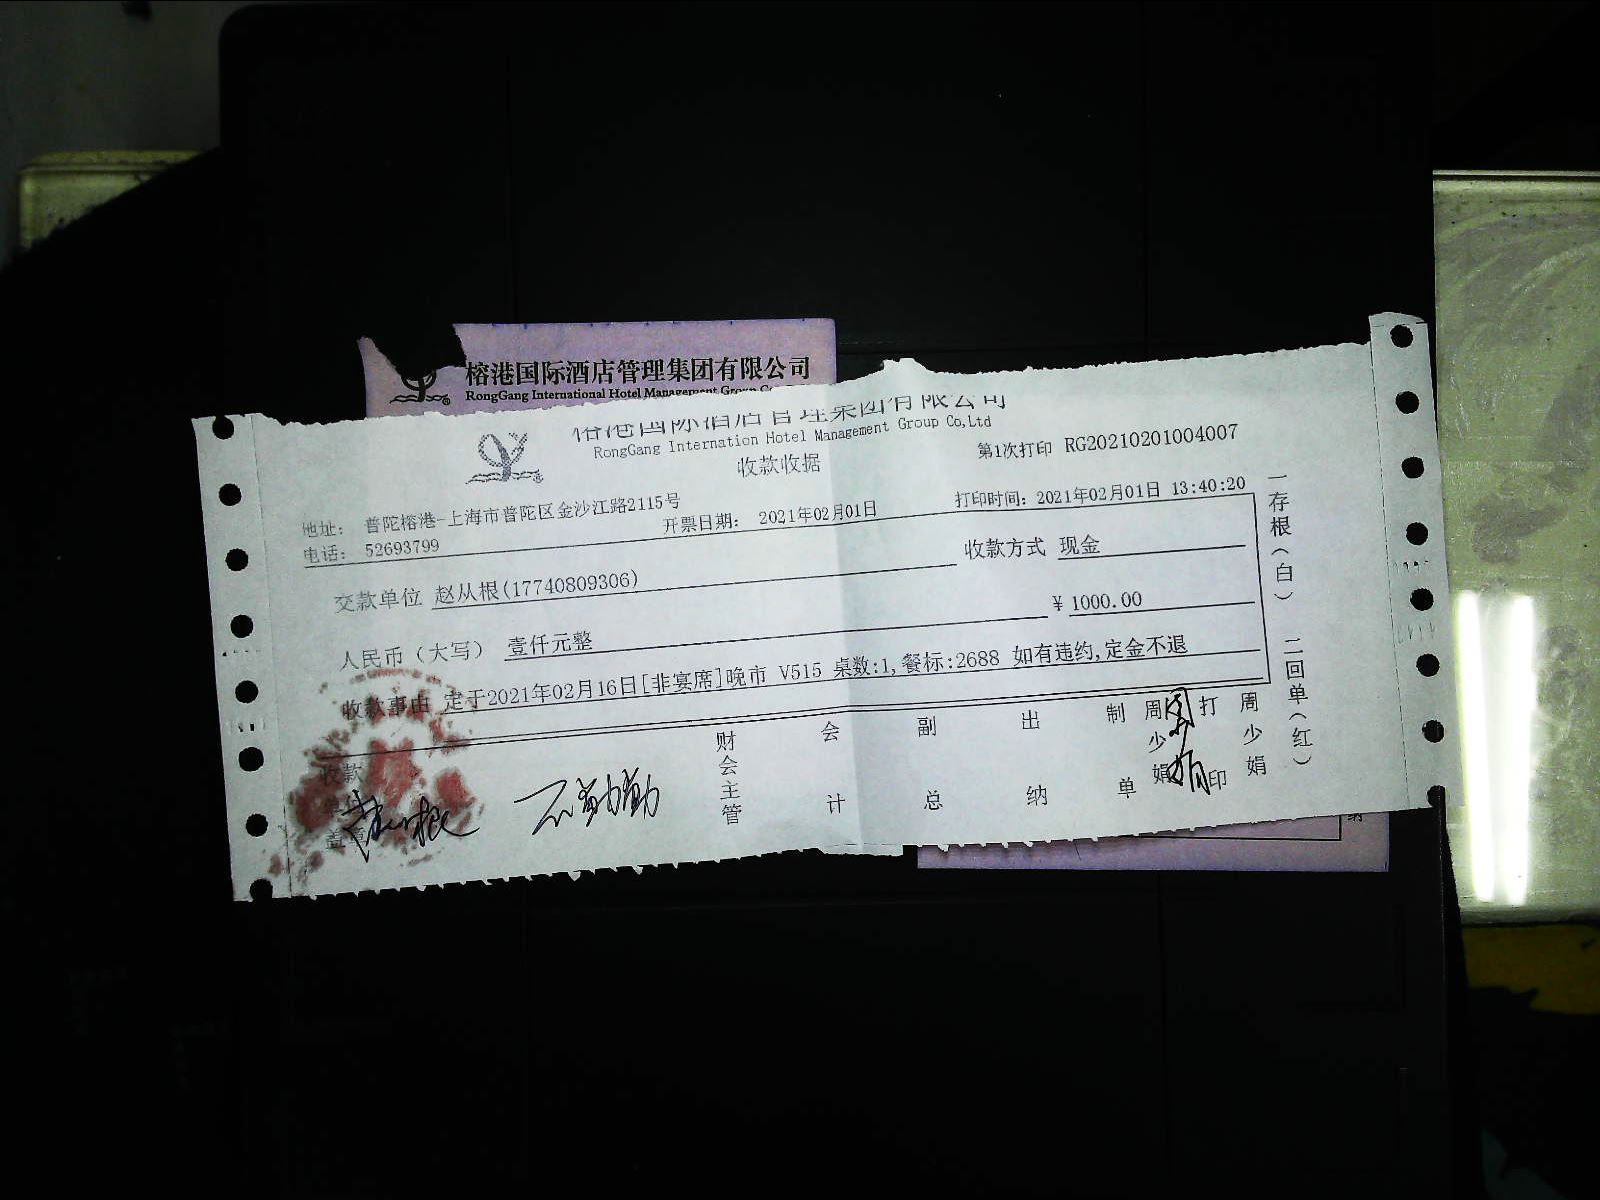 榕港国际酒店管理集团有限公司
RongGang International Hotel Management Group Co
榕港国际酒店管理集团有限公司
RongGang Internation Hotel Management Group Co,Ltd
收款收据
第1次打印 RG20210201004007
地址： 普陀榕港-上海市普陀区金沙江路2115号
电话： 52693799
开票日期： 2021年02月01日
打印时间：2021年02月01日 13:40:20
交款单位 赵从根(17740809306)
收款方式 现金
人民币（大写） 壹仟元整
¥ 1000.00
收款事由 定于2021年02月16日[非宴席]晚市 V515 桌数:1,餐标:2688 如有违约,定金不退
收款单位盖章
财会主管
会计
副总
出纳
制单
周少娟
周少娟
打印
周少娟
一存根（白） 二回单（红）
纳